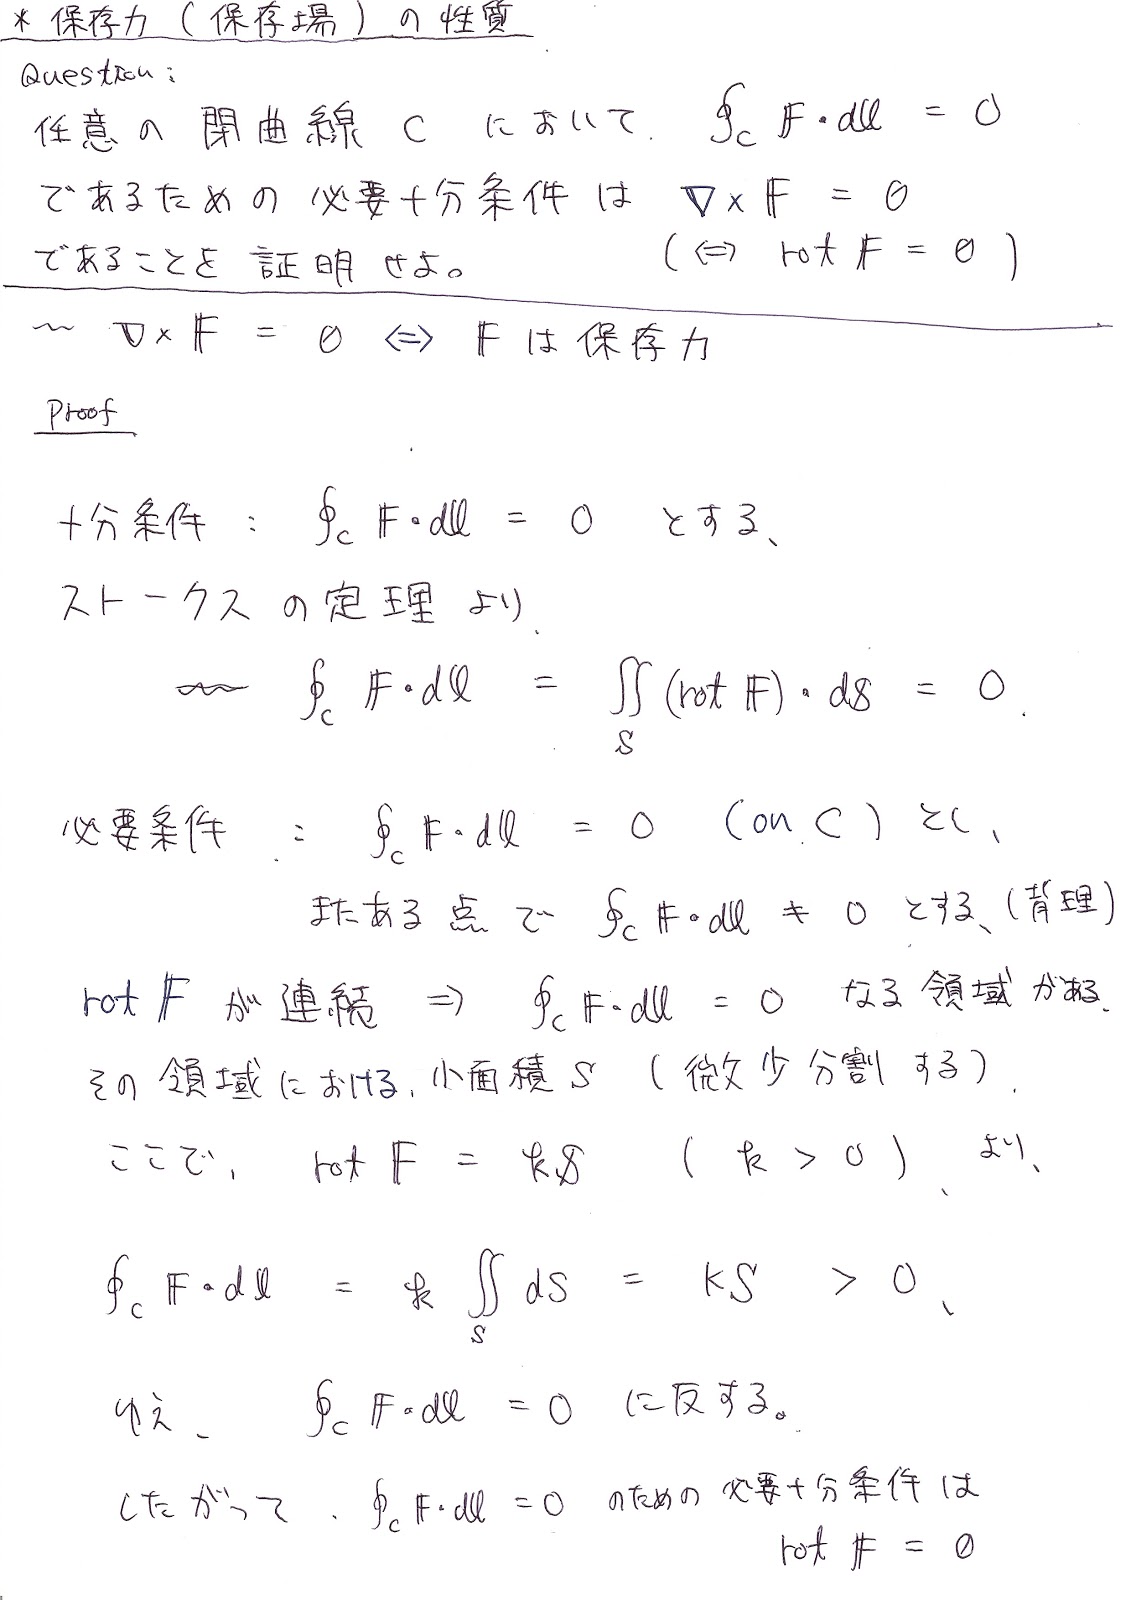 * 保存力（保存場）の性質
Question:
任意の閉曲線 C において、 ∮_C 𝔽・dl = 0
であるための必要十分条件は ∇×𝔽 = 0
であることを証明せよ。 (⇔ rot 𝔽 = 0)
〜 ∇×𝔽 = 0 ⇔ 𝔽は保存力
Proof
十分条件 : ∮_C 𝔽・dl = 0 とする、
ストークスの定理より、
〜 ∮_C 𝔽・dl = ∬_S (rot 𝔽)・dS = 0.
必要条件 : ∮_C 𝔽・dl = 0 (on C) とし、
またある点で ∮_C 𝔽・dl ≠ 0 とする、(背理)
rot 𝔽 が連続 ⇒ ∮_C 𝔽・dl = 0 なる領域がある.
その領域における、小面積 S (微少分割する).
ここで、 rot 𝔽 = kS (k > 0)、より、
∮_C 𝔽・dl = k ∬_S dS = kS > 0、
ゆえ、 ∮_C 𝔽・dl = 0 に反する。
したがって、∮_C 𝔽・dl = 0 のための必要十分条件は
rot 𝔽 = 0